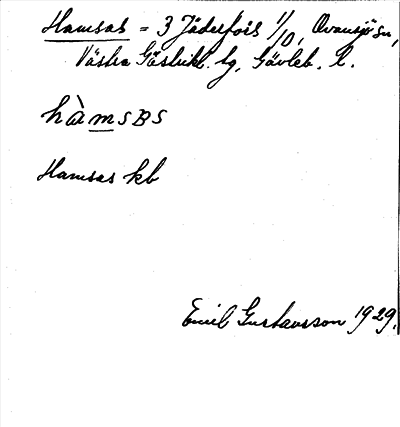 Hamsas = 3 Jäderfors 1/0, Ovansjö sn,
Västra Gästrikl. tg, Gävleb. l.
hàmsBS
Hamsas kb
Emil Gustavsson 1929.